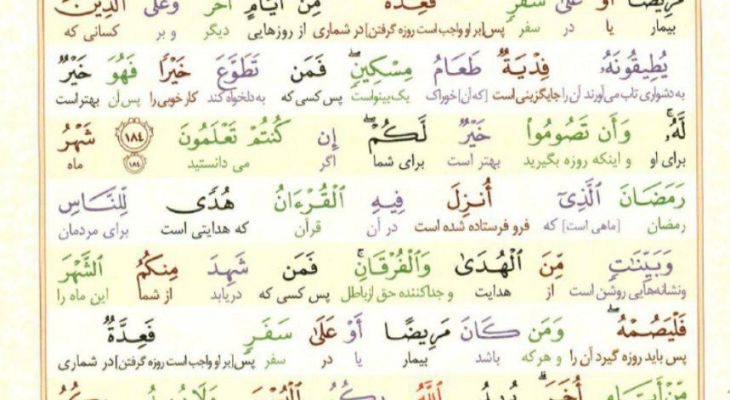 مَّرِيضًا أَوْ عَلَىٰ سَفَرٍ فَعِدَّةٌ مِّنْ أَيَّامٍ أُخَرَ وَعَلَى ٱلَّذِينَ
بیمار یا در سفر پس[بر او واجب است روزه گرفتن] در شماری از روزهایی دیگر و بر کسانی که
يُطِيقُونَهُۥ فِدْيَةٌ طَعَامُ مِسْكِينٍۖ فَمَن تَطَوَّعَ خَيْرًا فَهُوَ خَيْرٌ
به دشواری تاب می‌آورند آن را جایگزینی است [که آن] خوراک یک بینواست پس کسی که به دلخواه کند کار خوبی را پس آن بهتر است
لَّهُۥۚ وَأَن تَصُومُوا۟ خَيْرٌ لَّكُمْۖ إِن كُنتُمْ تَعْلَمُونَ ١٨٤ شَهْرُ
برای او و اینکه روزه بگیرید بهتر است برای شما اگر می دانستید ١٨٤ ماه
رَمَضَانَ ٱلَّذِىٓ أُنزِلَ فِيهِ ٱلْقُرْءَانُ هُدًى لِّلنَّاسِ
رمضان [ماهی است] که فرو فرستاده شده است در آن قرآن که هدایتی است برای مردمان
وَبَيِّنَٰتٍ مِّنَ ٱلْهُدَىٰ وَٱلْفُرْقَانِۚ فَمَن شَهِدَ مِنكُمُ ٱلشَّهْرَ
ونشانه‌هایی روشن است از هدایت و جداکننده حق از باطل پس کسی که دریابد از شما این ماه را
فَلْيَصُمْهُۖ وَمَن كَانَ مَرِيضًا أَوْ عَلَىٰ سَفَرٍ فَعِدَّةٌ
پس باید روزه گیرد آن را و هرکه باشد بیمار یا در سفر پس[بر او واجب است روزه گرفتن] در شماری
مِّنْ أَيَّامٍ أُخَرَۗ يُرِيدُ ٱللَّهُ بِكُمُ ٱلْيُسْرَ وَلَا يُرِيدُ بِكُمُ